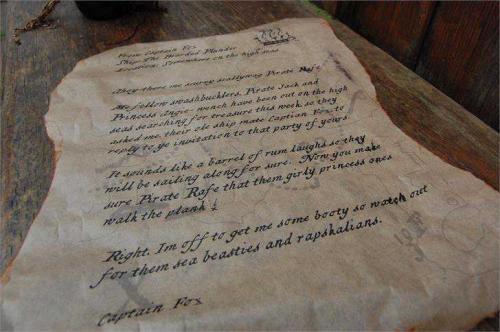 From Captain Fox
Ship: The Bearded Plunder
Location: Somewhere on the high seas
Ahoy there me scurvy scallywag Pirate Rafe
Me fellow swashbucklers, Pirate Jack and
Princess Angie's wench have been out on the high
seas searching for treasure this week so they
asked me, their ole ship mate Captian Fox to
reply to ye invitation to that party of yours.
It sounds like a barrel of rum laughs so they
will be sailing along for sure. Now you make
sure Pirate Rafe that them girly princess ones
walk the plank!
Right. Im off to get me some booty so watch out
for them sea beasties and rapskalians.
Captain Fox